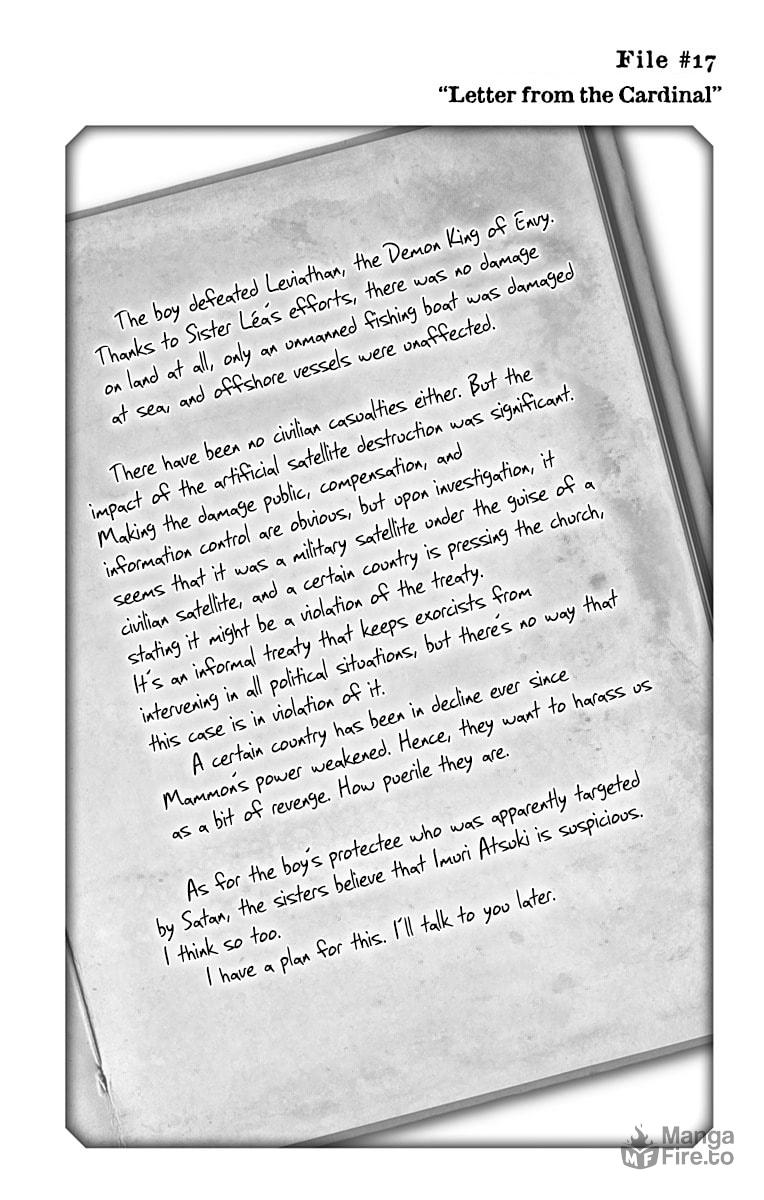 File #17
“Letter from the Cardinal”
The boy defeated Leviathan, the Demon King of Envy.
Thanks to Sister Léa's efforts, there was no damage
on land at all, only an unmanned fishing boat was damaged
at sea, and offshore vessels were unaffected.
There have been no civilian casualties either. But the
impact of the artificial satellite destruction was significant.
Making the damage public, compensation, and
information control are obvious, but upon investigation, it
seems that it was a military satellite under the guise of a
civilian satellite, and a certain country is pressing the church,
stating it might be a violation of the treaty.
It's an informal treaty that keeps exorcists from
intervening in all political situations, but there's no way that
this case is in violation of it.
A certain country has been in decline ever since
Mammon's power weakened. Hence, they want to harass us
as a bit of revenge. How puerile they are.
As for the boy's protectee who was apparently targeted
by Satan, the sisters believe that Imuri Atsuki is suspicious.
I think so too.
I have a plan for this. I'll talk to you later.
MF
Manga
Fire.to